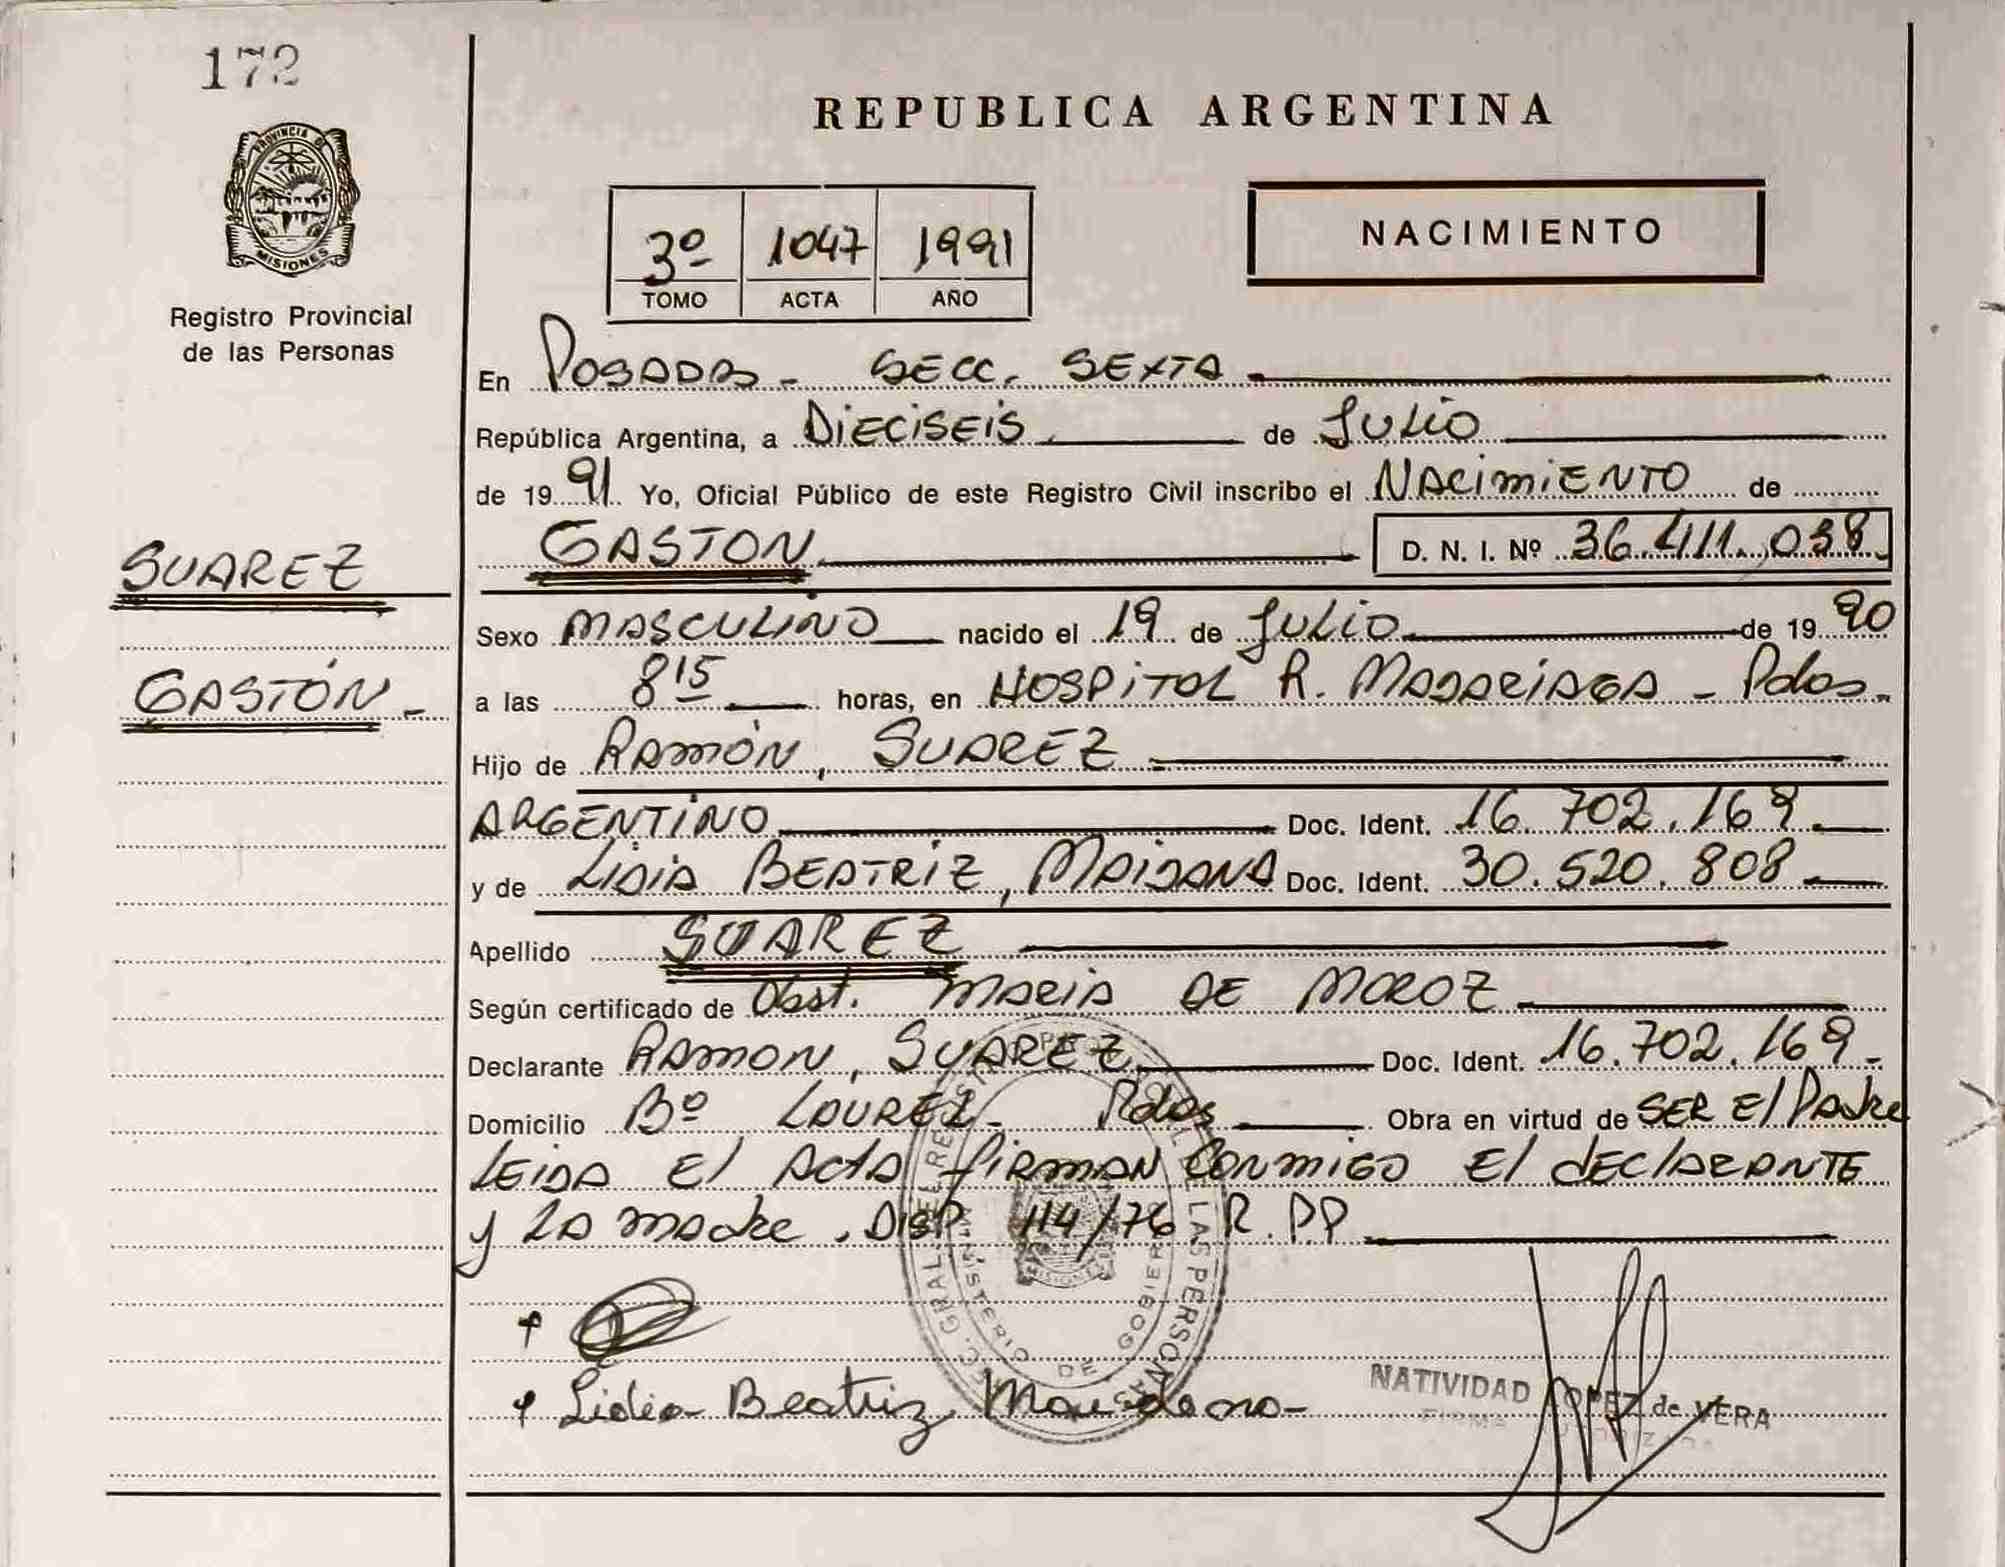 172
REPUBLICA ARGENTINA
PROVINCIA DE
MISIONES
Registro Provincial
de las Personas
3º 1047 1991
TOMO ACTA AÑO
NACIMIENTO
En POSADAS - SECC. SEXTA
República Argentina, a DIECISEIS de JULIO
de 1991 Yo, Oficial Público de este Registro Civil inscribo el NACIMIENTO de
GASTON D. N. I. Nº 36.411.038
SUAREZ
GASTÓN -
Sexo MASCULINO nacido el 19 de JULIO de 1990
a las 8 15 horas, en HOSPITAL R. MADARIAGA - Pdas.
Hijo de RAMÓN, SUAREZ
ARGENTINO Doc. Ident. 16.702.169
y de LIDIA BEATRIZ, MAIDANA Doc. Ident. 30.520.808
Apellido SUAREZ
Según certificado de Obst. MARIA DE MOROZ
Declarante RAMON, SUAREZ Doc. Ident. 16.702.169.-
Domicilio Bº LOUREZ - Pdas Obra en virtud de SER El Padre
LEIDA El ActA fiRMAN CONMIGO El dEClARANTE
y LA madre. DISP. 114/76 R.PP
MINISTERIO DE GOBIERNO
MISIONES
Lidia Beatriz Maidana-
NATIVIDAD LOPEZ de VERA